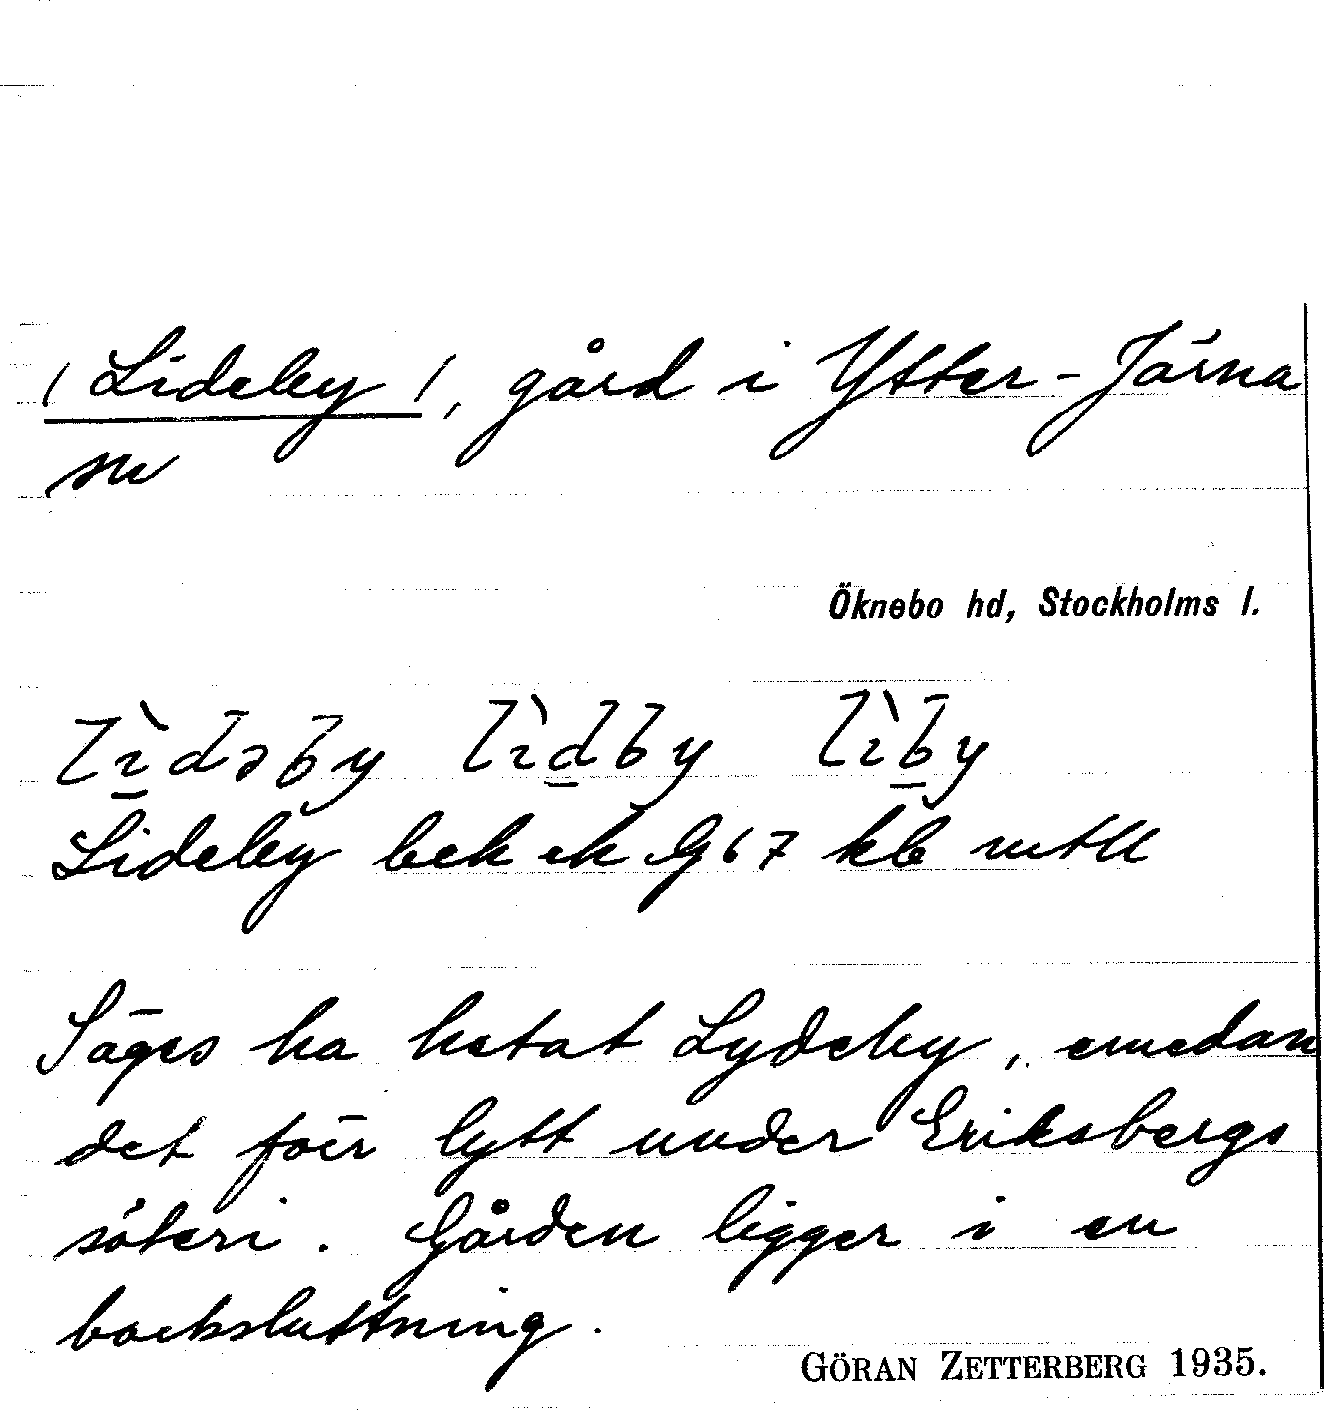 (Lideby), gård i Ytter-Järna
sn
Öknebo hd, Stockholms l.
lìdəby lìdby lìby
Lideby bek ek G 67 kb mtll
Säges ha hetat Lydeby, emedan
det förr lytt under Eriksbergs
säteri. Gården ligger i en
backsluttning.
GÖRAN ZETTERBERG 1935.